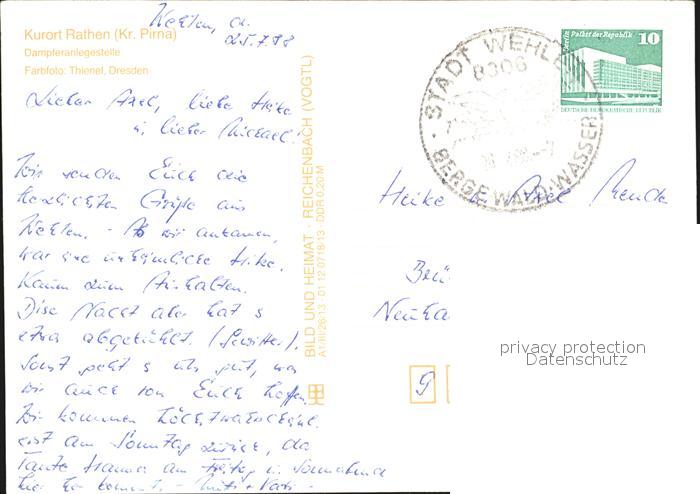 Kurort Rathen (Kr. Pirna)
Dampferanlegestelle
Farbfoto: Thienel, Dresden
Wehlen, d.
25.7.88
Lieber Axel, liebe Heike
u. lieber Michael!
Wir senden Euch die
herzlichsten Grüße aus
Wehlen. - Als wir ankamen,
war eine unheimliche Hitze.
Kaum zum Aushalten.
Diese Nacht aber hat s
etwas abgekühlt. (Gewitter).
Sonst geht s uns gut, was
wir auch von Euch hoffen.
Wir kommen höchstwahrscheinl.
erst am Sonntag zurück, da
Tante Hanna am Freitag u. Sonnabend
hier her kommt. - Mutti + Vati -
BILD UND HEIMAT · REICHENBACH (VOGTL)
A1/III/26/13 · 01 12 0718/13 · DDR 0,20 M
STADT WEHLEN
8306
BERGE WALD WASSER
Berlin Palast der Republik
10
DEUTSCHE DEMOKRATISCHE REPUBLIK
Heike u. Axel
Neuha
9
privacy protection
Datenschutz